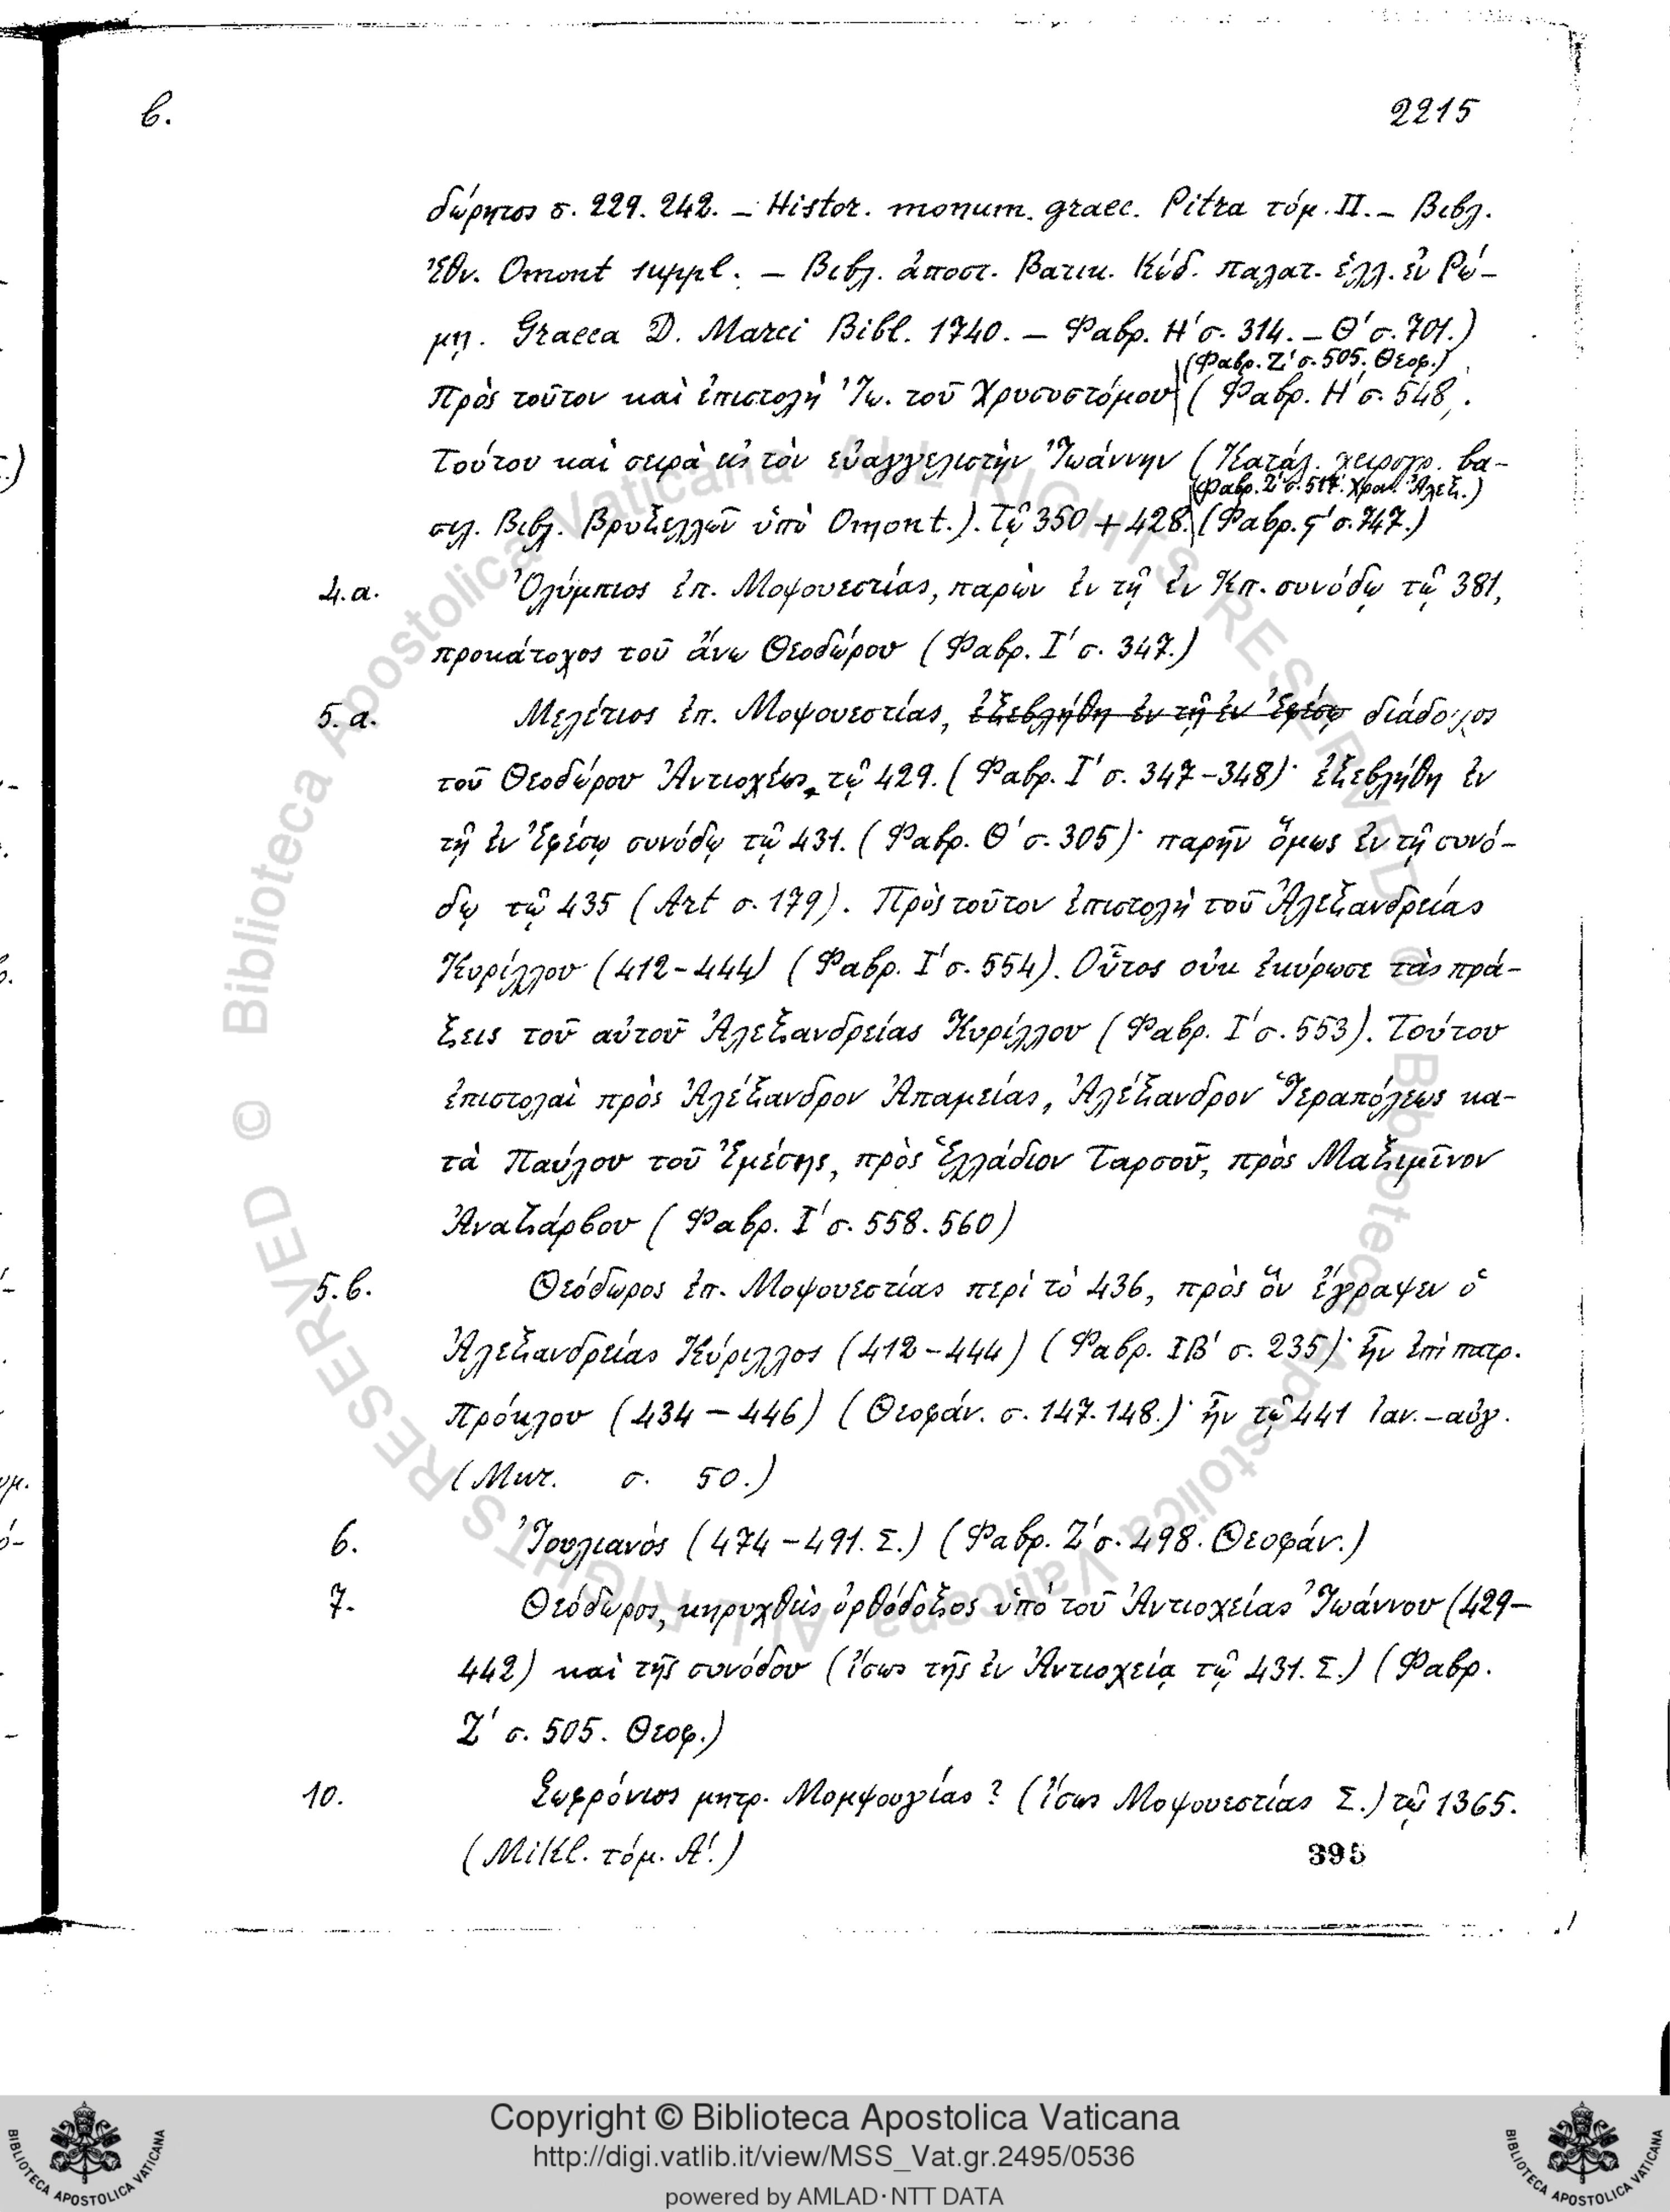 β. 2215
δώρητος σ. 229. 242. – Histor. monum. graec. Pitra τόμ. II. – Βιβλ.
Ἐθν. Omont suppl. – Βιβλ. ἀποστ. Βατικ. Κώδ. παλατ. ἑλλ. ἐν Ρώ-
μῃ. Graeca D. Marci Bibl. 1740. – Φαβρ. Η΄ σ. 314. – Θ΄ σ. 701.)
(Φαβρ. Ζ΄ σ. 505. Θεοφ.)
Πρὸς τοῦτον καὶ ἐπιστολὴ Ἰω. τοῦ Χρυσοστόμου (Φαβρ. Η΄ σ. 548.
Τούτου καὶ σειρὰ εἰς τὸν εὐαγγελιστὴν Ἰωάννην (Κατάλ. χειρογρ. βα-
(Φαβρ. Ζ΄ σ. 517. Χρον. Ἀλεξ.)
σιλ. Βιβλ. Βρυξελλῶν ὑπὸ Omont.). Τῷ 350 + 428. (Φαβρ. ϛ΄ σ. 747.)
4.α. Ὀλύμπιος ἐπ. Μοψουεστίας, παρὼν ἐν τῇ ἐν Κπ. συνόδῳ τῷ 381,
προκάτοχος τοῦ ἄνω Θεοδώρου (Φαβρ. Ι΄ σ. 347.)
5.α. Μελέτιος ἐπ. Μοψουεστίας, ἐξεβλήθη ἐν τῇ ἐν Ἐφέσῳ διάδοχος
τοῦ Θεοδώρου Ἀντιοχέως, τῷ 429. (Φαβρ. Ι΄ σ. 347-348)· ἐξεβλήθη ἐν
τῇ ἐν Ἐφέσῳ συνόδῳ τῷ 431. (Φαβρ. Θ΄ σ. 305)· παρῆν ὅμως ἐν τῇ συνό-
δῳ τῷ 435 (Art σ. 179). Πρὸς τοῦτον ἐπιστολὴ τοῦ Ἀλεξανδρείας
Κυρίλλου (412-444) (Φαβρ. Ι΄ σ. 554). Οὗτος οὐκ ἐκύρωσε τὰς πρά-
ξεις τοῦ αὐτοῦ Ἀλεξανδρείας Κυρίλλου (Φαβρ. Ι΄ σ. 553). Τούτου
ἐπιστολαὶ πρὸς Ἀλέξανδρον Ἀπαμείας, Ἀλέξανδρον Ἱεραπόλεως κα-
τὰ Παύλου τοῦ Ἐμέσης, πρὸς Ἑλλάδιον Ταρσοῦ, πρὸς Μαξιμῖνον
Ἀναζάρβου (Φαβρ. Ι΄ σ. 558. 560)
5.β. Θεόδωρος ἐπ. Μοψουεστίας περὶ τὸ 436, πρὸς ὃν ἔγραψεν ὁ
Ἀλεξανδρείας Κύριλλος (412-444) (Φαβρ. ΙΒ΄ σ. 235)· ἦν ἐπὶ πατρ.
Πρόκλου (434-446) (Θεοφάν. σ. 147. 148.)· ἦν τῷ 441 Ιαν.-αὐγ.
(Mur. σ. 50.)
6. Ἰουλιανός (474-491. Σ.) (Φαβρ. Ζ΄ σ. 498. Θεοφάν.)
7. Θεόδωρος, κηρυχθεὶς ὀρθόδοξος ὑπὸ τοῦ Ἀντιοχείας Ἰωάννου (429-
442) καὶ τῆς συνόδου (ἴσως τῆς ἐν Ἀντιοχείᾳ τῷ 431. Σ.) (Φαβρ.
Ζ΄ σ. 505. Θεοφ.)
10. Σωφρόνιος μητρ. Μομψουγίας ? (ἴσως Μοψουεστίας Σ.) τῷ 1365.
(Mikl. τόμ. Α΄.) 395
Copyright © Biblioteca Apostolica Vaticana
http://digi.vatlib.it/view/MSS_Vat.gr.2495/0536
powered by AMLAD·NTT DATA